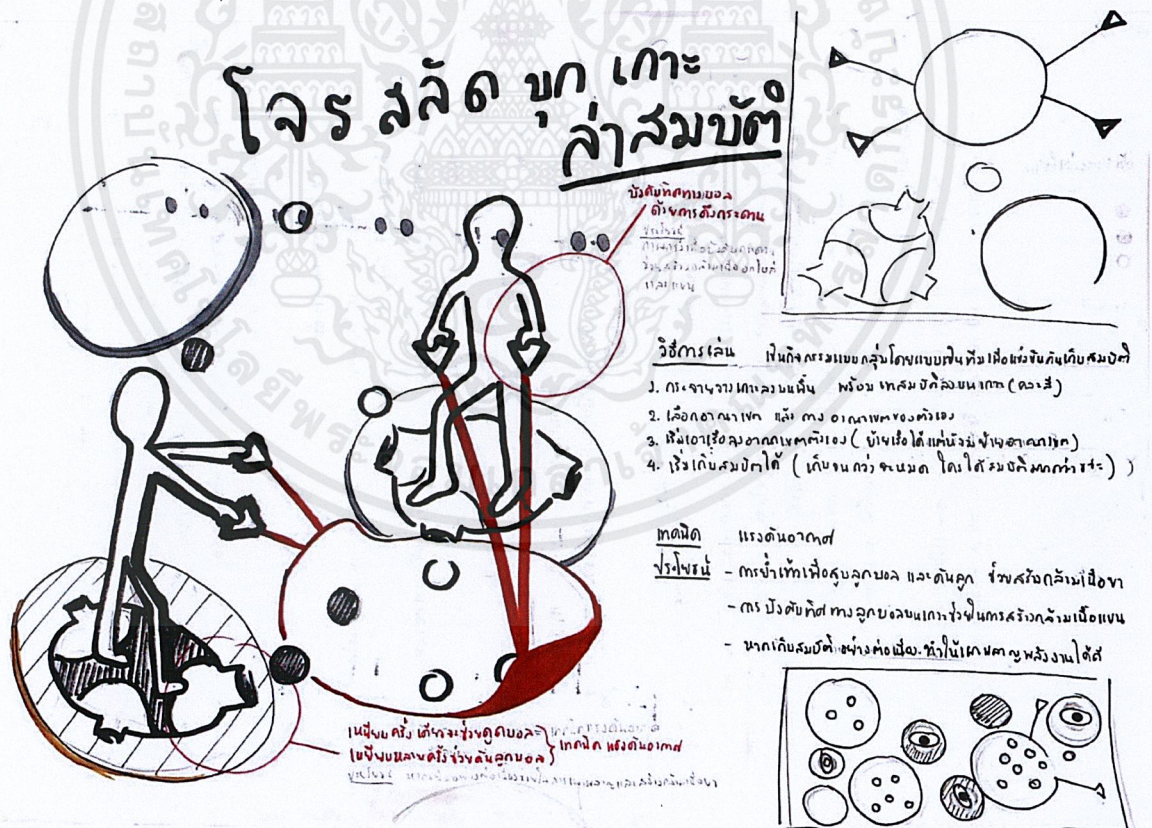 โจรสลัดบุกเกาะ
ล่าสมบัติ
บังคับทิศทางบอล
ด้วยการดึงกระดาน
ประโยชน์
วิธีการเล่น เป็นกิจกรรมแบบกลุ่มโดยแบบเป็นทีมเพื่อแข่งขันกันเก็บสมบัติ
1. กระจายวางเกาะลงบนพื้น พร้อมเทสมบัติลงบนเกาะ (คละสี)
2. เลือกอาณาเขต และ กาง อาณาเขตของตัวเอง
3. เริ่มเอาเรือลงอาณาเขตตัวเอง (ย้ายเรือได้แต่ห้ามย้ายอาณาเขต)
4. เริ่มเก็บสมบัติได้ (เก็บจนกว่าจะหมด ใครได้สมบัติมากกว่าชนะ)
เทคนิค แรงดันอากาศ
ประโยชน์ - การย่ำเท้าเพื่อสูบลูกบอล และดันลูก ช่วยสร้างกล้ามเนื้อขา
- การบังคับทิศทางลูกบอลบนเกาะช่วยในการสร้างกล้ามเนื้อแขน
- หากเก็บสมบัติอย่างต่อเนื่อง ทำให้เผาผลาญพลังงานได้ดี
เหยียบครั้งเดียวจะช่วยดูดบอล
เหยียบหลายครั้งช่วยดันลูกบอล } เทคนิค แรงดันอากาศ
ประโยชน์